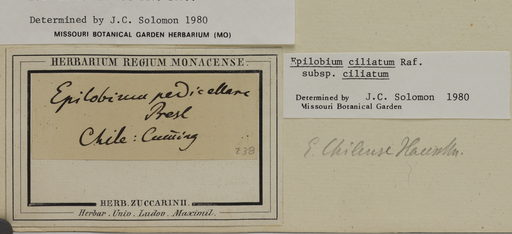 Determined by J.C. Solomon 1980
MISSOURI BOTANICAL GARDEN HERBARIUM (MO)
HERBARIUM REGIUM MONACENSE.
Epilobium pedicellare
Presl
Chile: Cuming
239
HERB. ZUCCARINII.
Herbar. Univ. Ludov. Maximil.
Epilobium ciliatum Raf.
subsp. ciliatum
Determined by J.C. Solomon 1980
Missouri Botanical Garden
E. Chilense Hausskn.